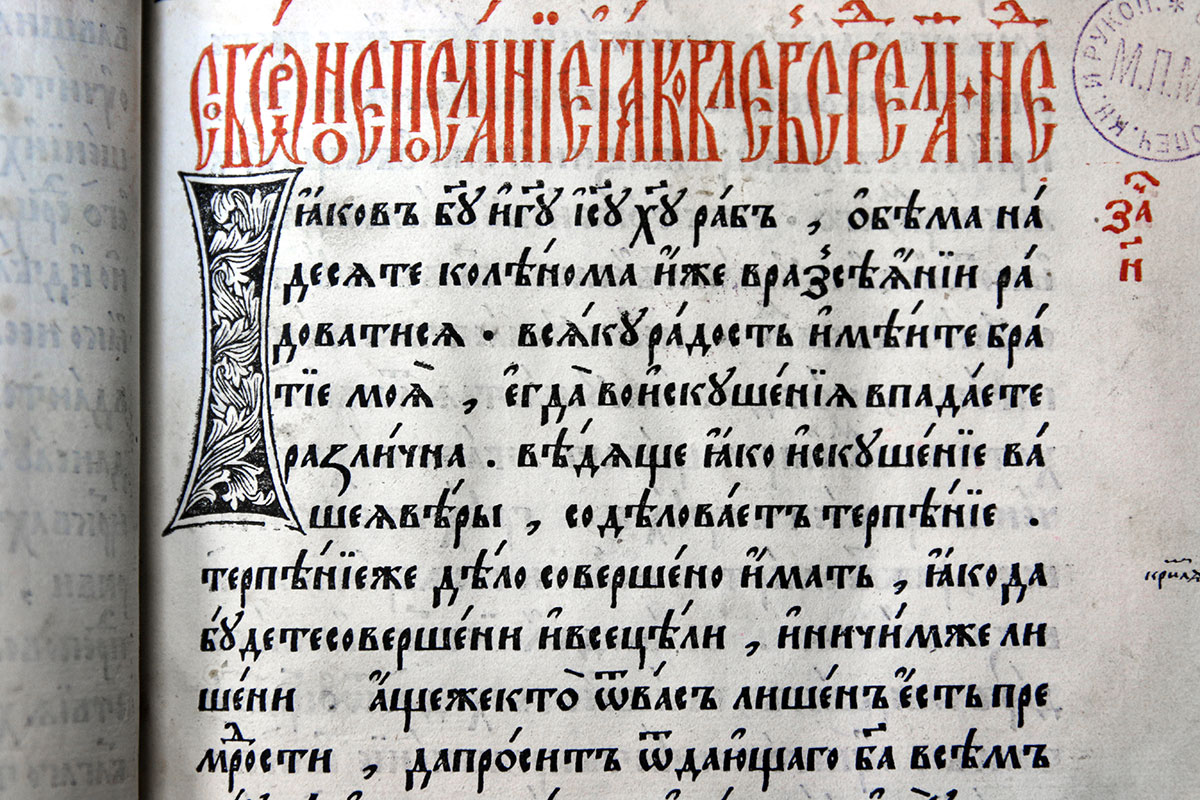 Соборное посланіе іаковле въ среда· н е
Іꙗ҆́ковъ бг҃ꙋ и҆ гдⷭ҇ꙋ і҆с҃ꙋ хрⷭ҇тꙋ́ ра́бъ , ѻ҆бѣ́ма на́
десяте колѣ́нома и҆́же вразсѣ́ꙗнїи ра́
доватися · вся́кꙋ ра́дость и҆мѣ́ите бра́
тїе моя̀ , є҆гда̀ вои҆скꙋше́нїя впада́ете
разли́чна . вѣ́дяще ꙗ҆́ко и҆скꙋше́нїе ва́
шея вѣ́ры , содѣлова́етъ терпѣ́нїе .
терпѣ́нїеже дѣ́ло соверше́но и҆́мать , ꙗ҆́ко да
бꙋ́дете соверше́ни и҆ всецѣ́ли , и҆ ничи́мже ли
ше́ни . а҆́щежекто̀ ѿва́съ лише́нъ є҆́сть пре
мꙋⷣрости , да про́ситъ ѿдаю҆́щаго бг҃а всѣ́мъ
за
н
М.П.М